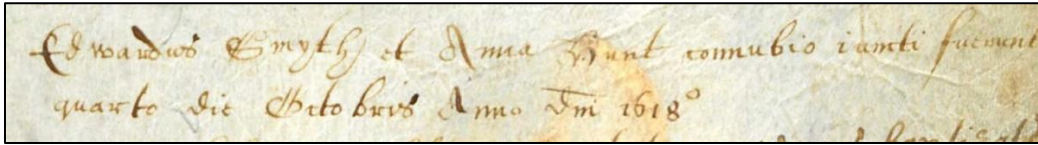 Edwardus Smyth et Anna Hunt connubio iuncti fuerunt
quarto die Octobris Anno Dm̄ 1618º